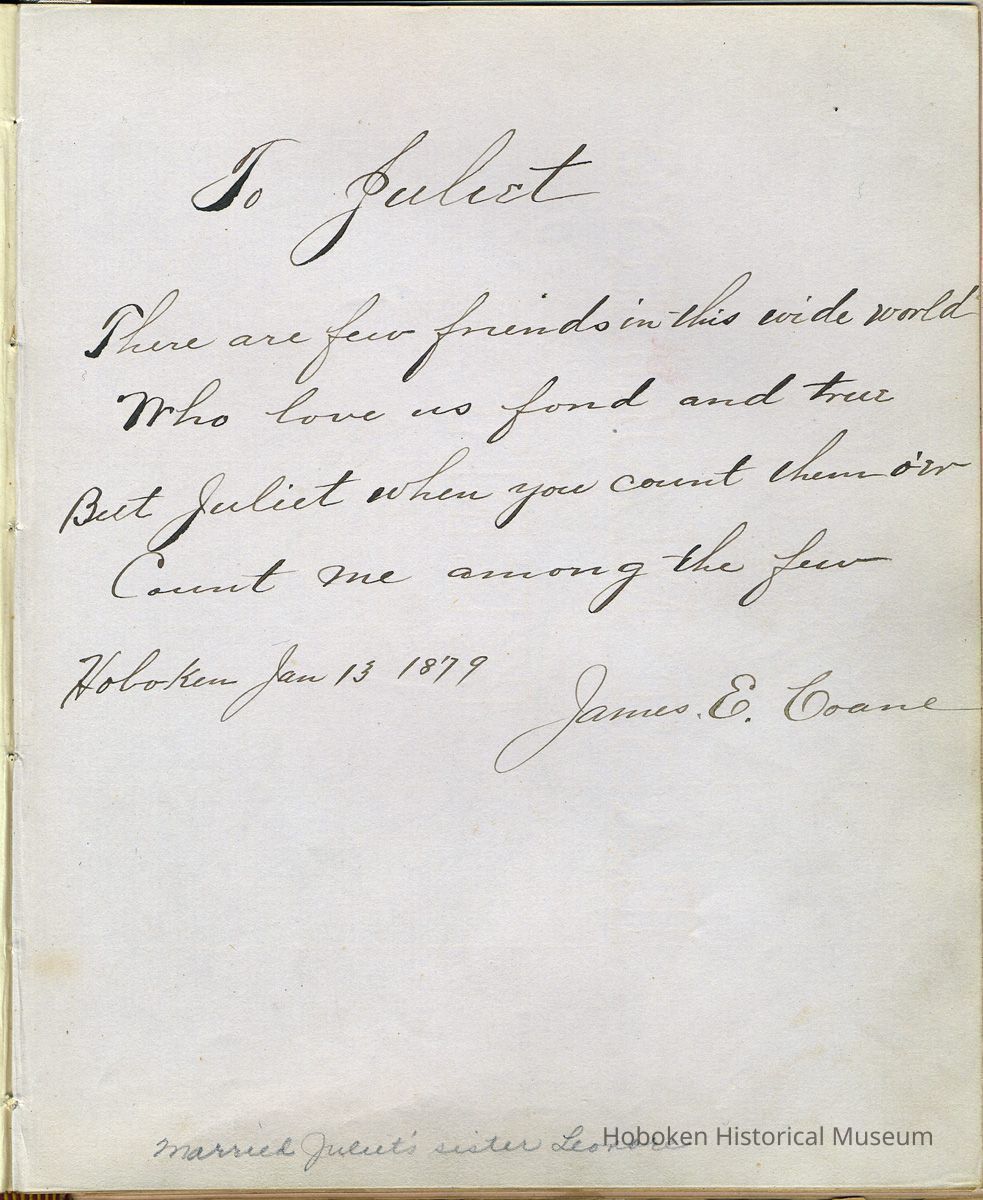 To Juliet
There are few friends in this wide world
Who love us fond and true
But Juliet when you count them o'er
Count me among the few
Hoboken Jan 13 1879
James. E. Coane
Married Juliet's sister Leonore
Hoboken Historical Museum